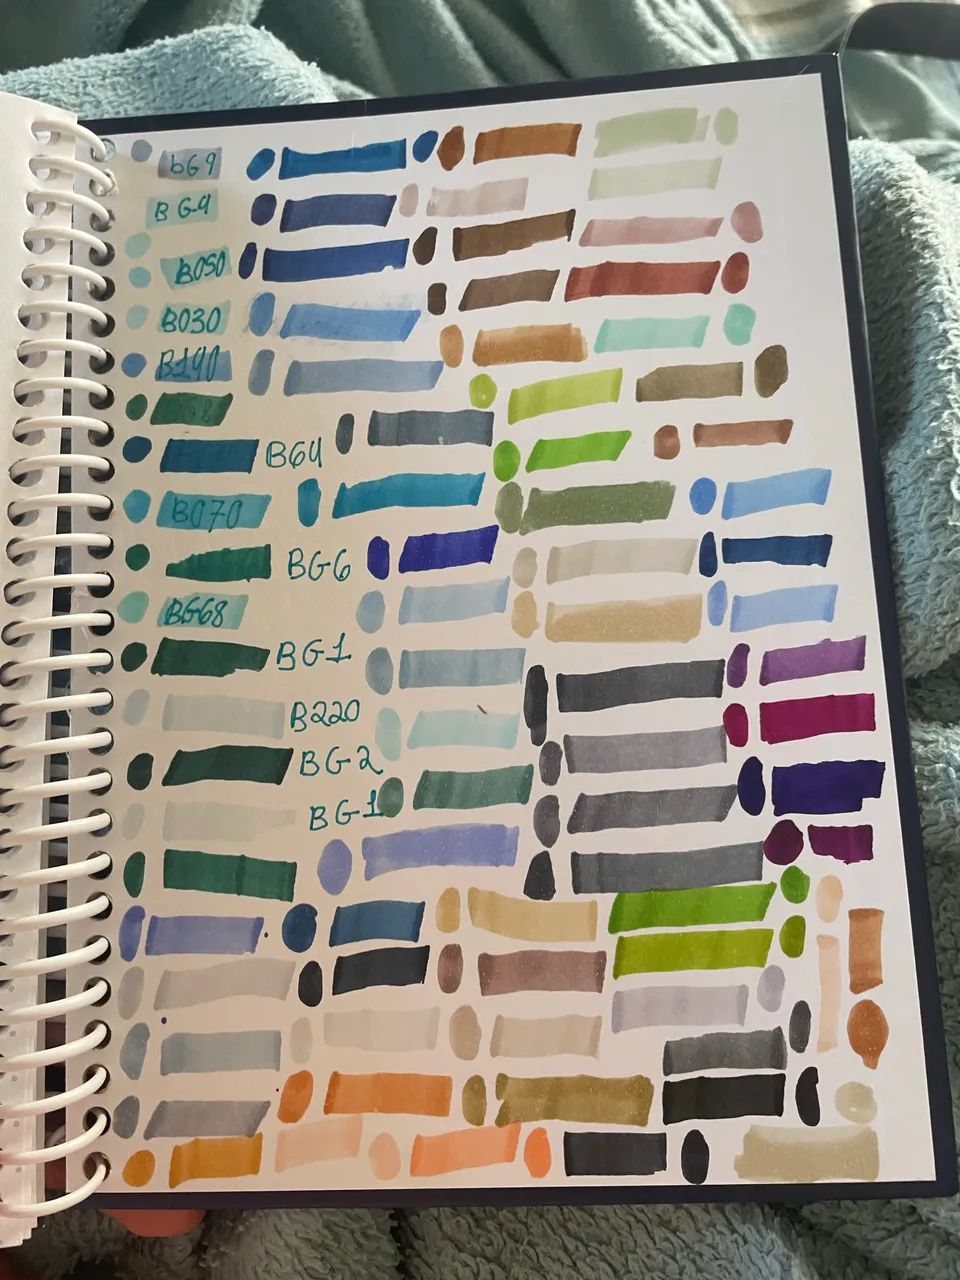 bG9
BG4
B050
B030
B190
98
B64
B070
BG6
BG68
BG1
B220
BG2
BG1